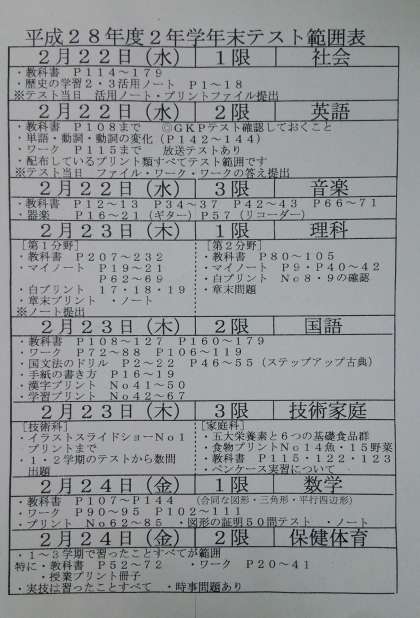 平成２８年度２年学年末テスト範囲表
２月２２日（水） １限 社会
・教科書　Ｐ１１４～１７９
・歴史の学習２・３活用ノート　Ｐ１～１８
※テスト当日　活用ノート・プリントファイル提出
２月２２日（水） ２限 英語
・教科書　Ｐ１０８まで　◎ＧＫＰテスト確認しておくこと
・単語・動詞・動詞の変化（Ｐ１４２～１４４）
・ワーク　Ｐ１１５まで　放送テストあり
・配布しているプリント類すべてテスト範囲です
※テスト当日　ファイル・ワーク・ワークの答え提出
２月２２日（水） ３限 音楽
・教科書　Ｐ１２～１３　Ｐ３４～３７　Ｐ４２～４３　Ｐ６６～７１
・器楽　Ｐ１６～２１（ギター）Ｐ５７（リコーダー）
２月２３日（木） １限 理科
［第１分野］
・教科書　Ｐ２０７～２３２
・マイノート　Ｐ１９～２１
Ｐ６２～６９
・白プリント　１７・１８・１９
・章末プリント　・ノート
※ノート提出
［第２分野］
・教科書　Ｐ８０～１０５
・マイノート　Ｐ９・Ｐ４０～４２
・白プリント　Ｎｏ８・９の確認
・章末問題
２月２３日（木） ２限 国語
・教科書　Ｐ１０８～１２７　Ｐ１６０～１７９
・ワーク　Ｐ７２～８８　Ｐ１０６～１１９
・国文法のドリル　Ｐ２～２２　Ｐ４６～５５（ステップアップ古典）
・手紙の書き方　Ｐ１６～１９
・漢字プリント　Ｎｏ４１～５０
・学習プリント　Ｎｏ４２～６７
２月２３日（木） ３限 技術家庭
［技術科］
・イラストスライドショーＮｏ１
プリントまで
・１・２学期のテストから数問
出題
［家庭科］
・五大栄養素と６つの基礎食品群
・食物プリントＮｏ１４魚・１５野菜
・教科書　Ｐ１１５・１２２・１２３
・ペンケース実習について
２月２４日（金） １限 数学
・教科書　Ｐ１０７～Ｐ１４４　（合同な図形・三角形・平行四辺形）
・ワーク　Ｐ９０～９５　Ｐ１０２～１１１
・プリント　Ｎｏ６２～８５　・図形の証明５０問テスト　・ノート
２月２４日（金） ２限 保健体育
・１～３学期で習ったことすべてが範囲
特に・教科書　Ｐ５２～７２　・ワーク　Ｐ２０～４１
・授業プリント冊子
・実技は習ったことすべて　・時事問題あり